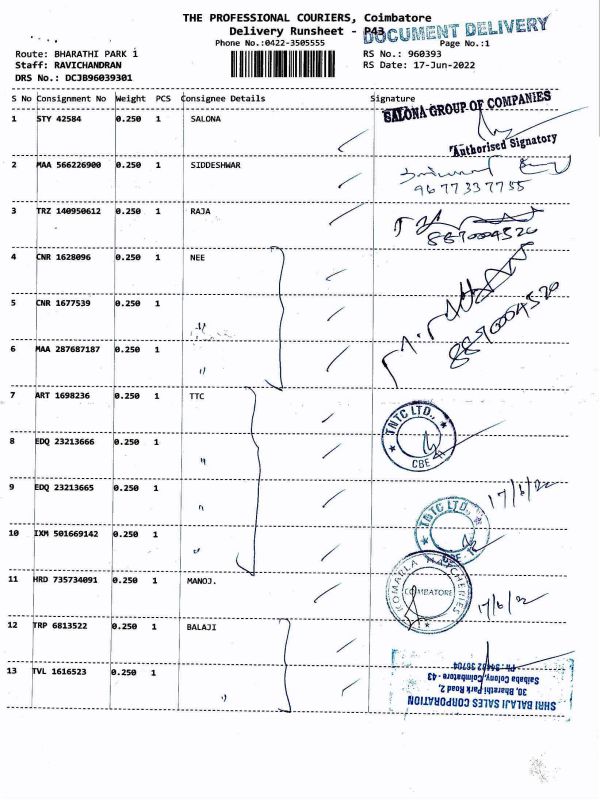 THE PROFESSIONAL COURIERS, Coimbatore
Delivery Runsheet - P43
DOCUMENT DELIVERY
Phone No.:0422-3505555
Page No.:1
Route: BHARATHI PARK 1
RS No.: 960393
Staff: RAVICHANDRAN
RS Date: 17-Jun-2022
DRS No.: DCJB96039301
S No Consignment No Weight PCS Consignee Details Signature
1 STY 42584 0.250 1 SALONA
SALONA GROUP OF COMPANIES
Authorised Signatory
2 MAA 566226900 0.250 1 SIDDESHWAR
9677337755
3 TRZ 140950612 0.250 1 RAJA
8870004520
4 CNR 1628096 0.250 1 NEE
5 CNR 1677539 0.250 1 "
8870004520
6 MAA 287687187 0.250 1 "
7 ART 1698236 0.250 1 TTC
TNTC LTD.,
CBE
8 EDQ 23213666 0.250 1 "
9 EDQ 23213665 0.250 1 "
17/6/22
TNTC LTD.,
10 IXM 501669142 0.250 1 "
11 HRD 735734091 0.250 1 MANOJ.
KOMARLA HATCHERIES
COIMBATORE
17/6/22
12 TRP 6813522 0.250 1 BALAJI
13 TVL 1616523 0.250 1 "
SHRI BALAJI SALES CORPORATION
30, Bharathi Park Road 2,
Saibaba Colony, Coimbatore - 43